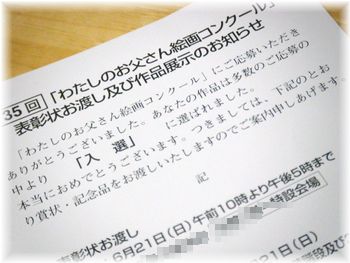 35回「わたしのお父さん絵画コンクール」
表彰状お渡し及び作品展示のお知らせ
「わたしのお父さん絵画コンクール」にご応募いただき
ありがとうございました。あなたの作品は多数のご応募の
中より「入 選」に選ばれました。
本当におめでとうございます。つきましては、下記のとお
り賞状・記念品をお渡しいたしますのでご案内申しあげます。
記
表彰状お渡し
6月21日(日)午前10時より午後5時まで
特設会場
21日(日)